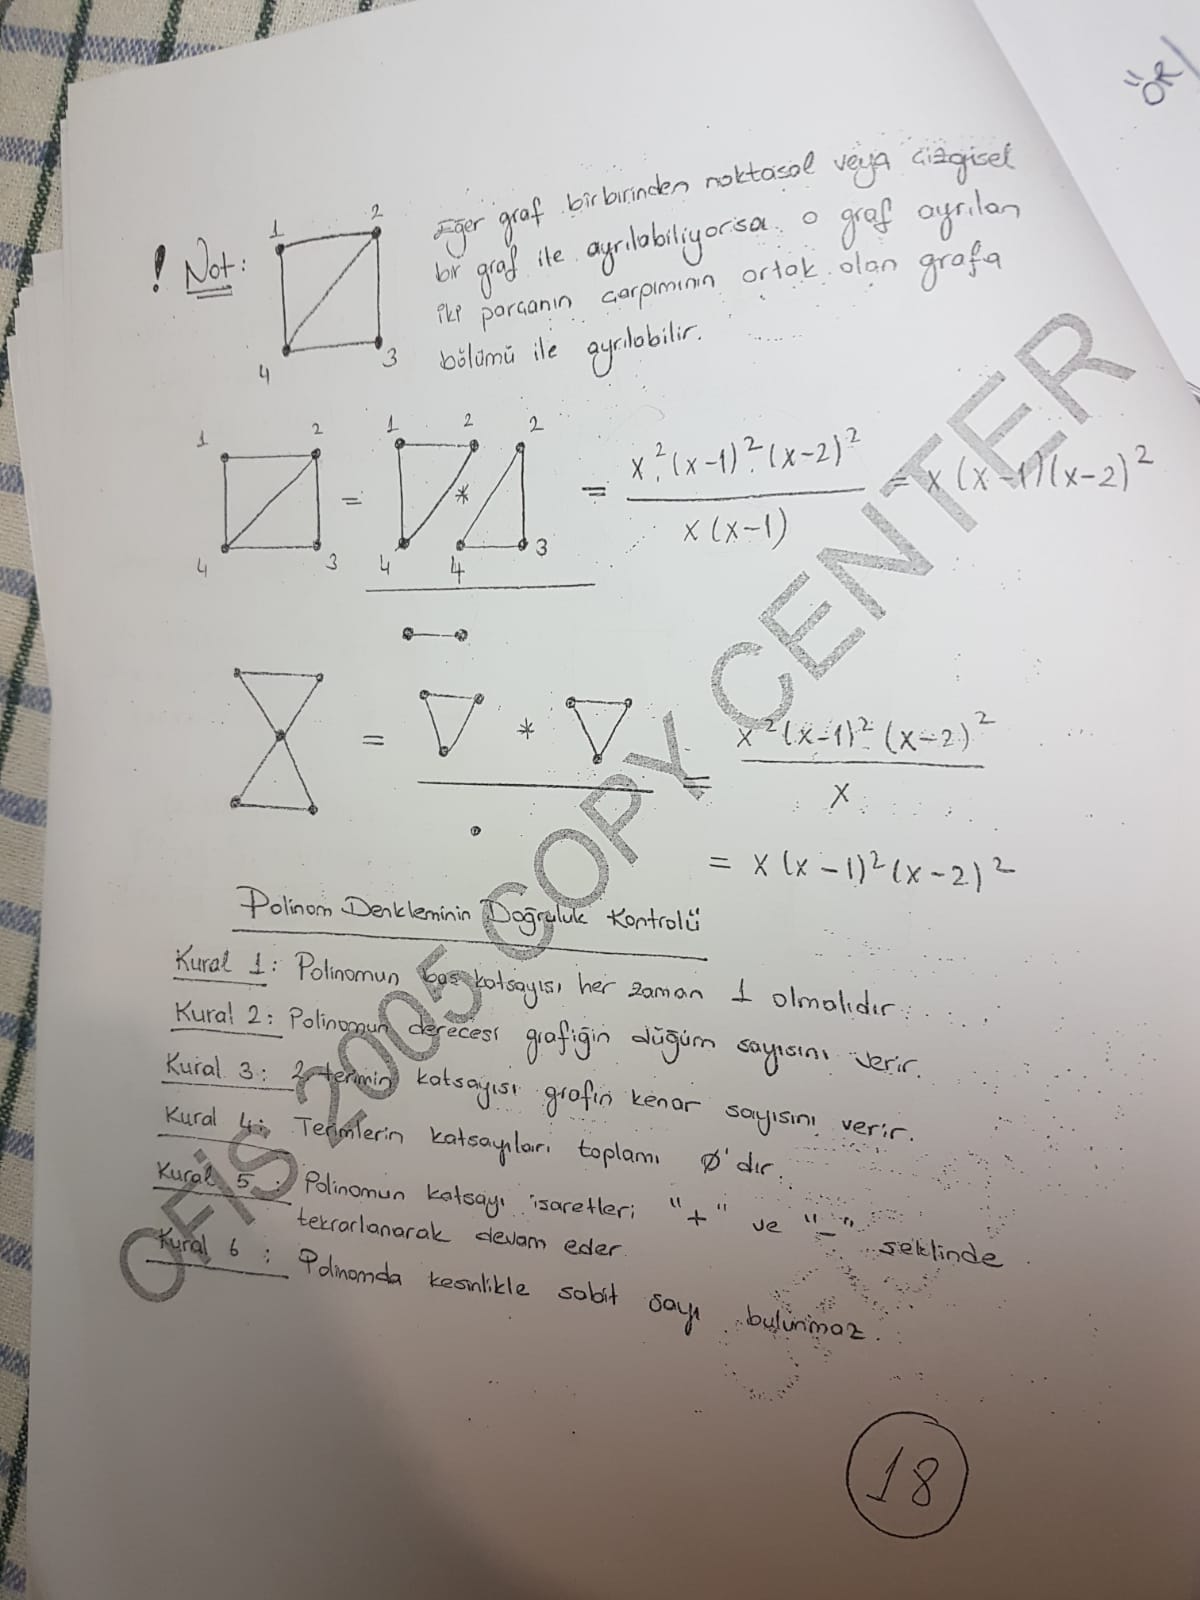 ÖR/
! Not:
1 2
4 3
Eğer graf birbirinden noktasal veya çizgisel
bir graf ile ayrılabiliyorsa o graf ayrılan
iki parçanın çarpımının ortak olan grafa
bölümü ile ayrılabilir.
1 2 4 3 = 1 2 4 * 2 4 3 = x².(x-1)².(x-2)² / x(x-1) = x(x-1)(x-2)²
= * = x²(x-1)².(x-2)² / x
= x(x-1)²(x-2)²
Polinom Denkleminin Doğruluk Kontrolü
Kural 1: Polinomun baş katsayısı her zaman 1 olmalıdır.
Kural 2: Polinomun derecesi grafiğin düğüm sayısını verir.
Kural 3: 2. terimin katsayısı grafın kenar sayısını verir.
Kural 4: Terimlerin katsayıları toplamı Ø'dır.
Kural 5: Polinomun katsayı işaretleri "+" ve "-" şeklinde
tekrarlanarak devam eder.
Kural 6: Polinomda kesinlikle sabit sayı bulunmaz.
OFİS 2005 COPY CENTER
18